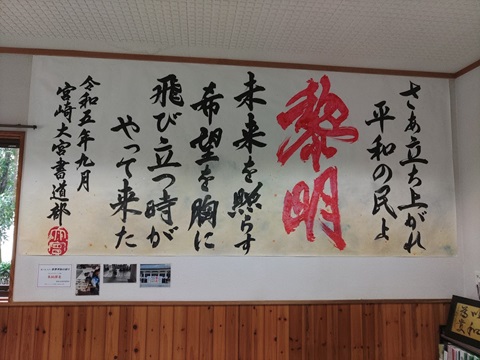 さあ立ち上がれ
平和の民よ
黎明
未来を照らす
希望を胸に
飛び立つ時が
やって来た
令和五年九月
宮崎大宮書道部